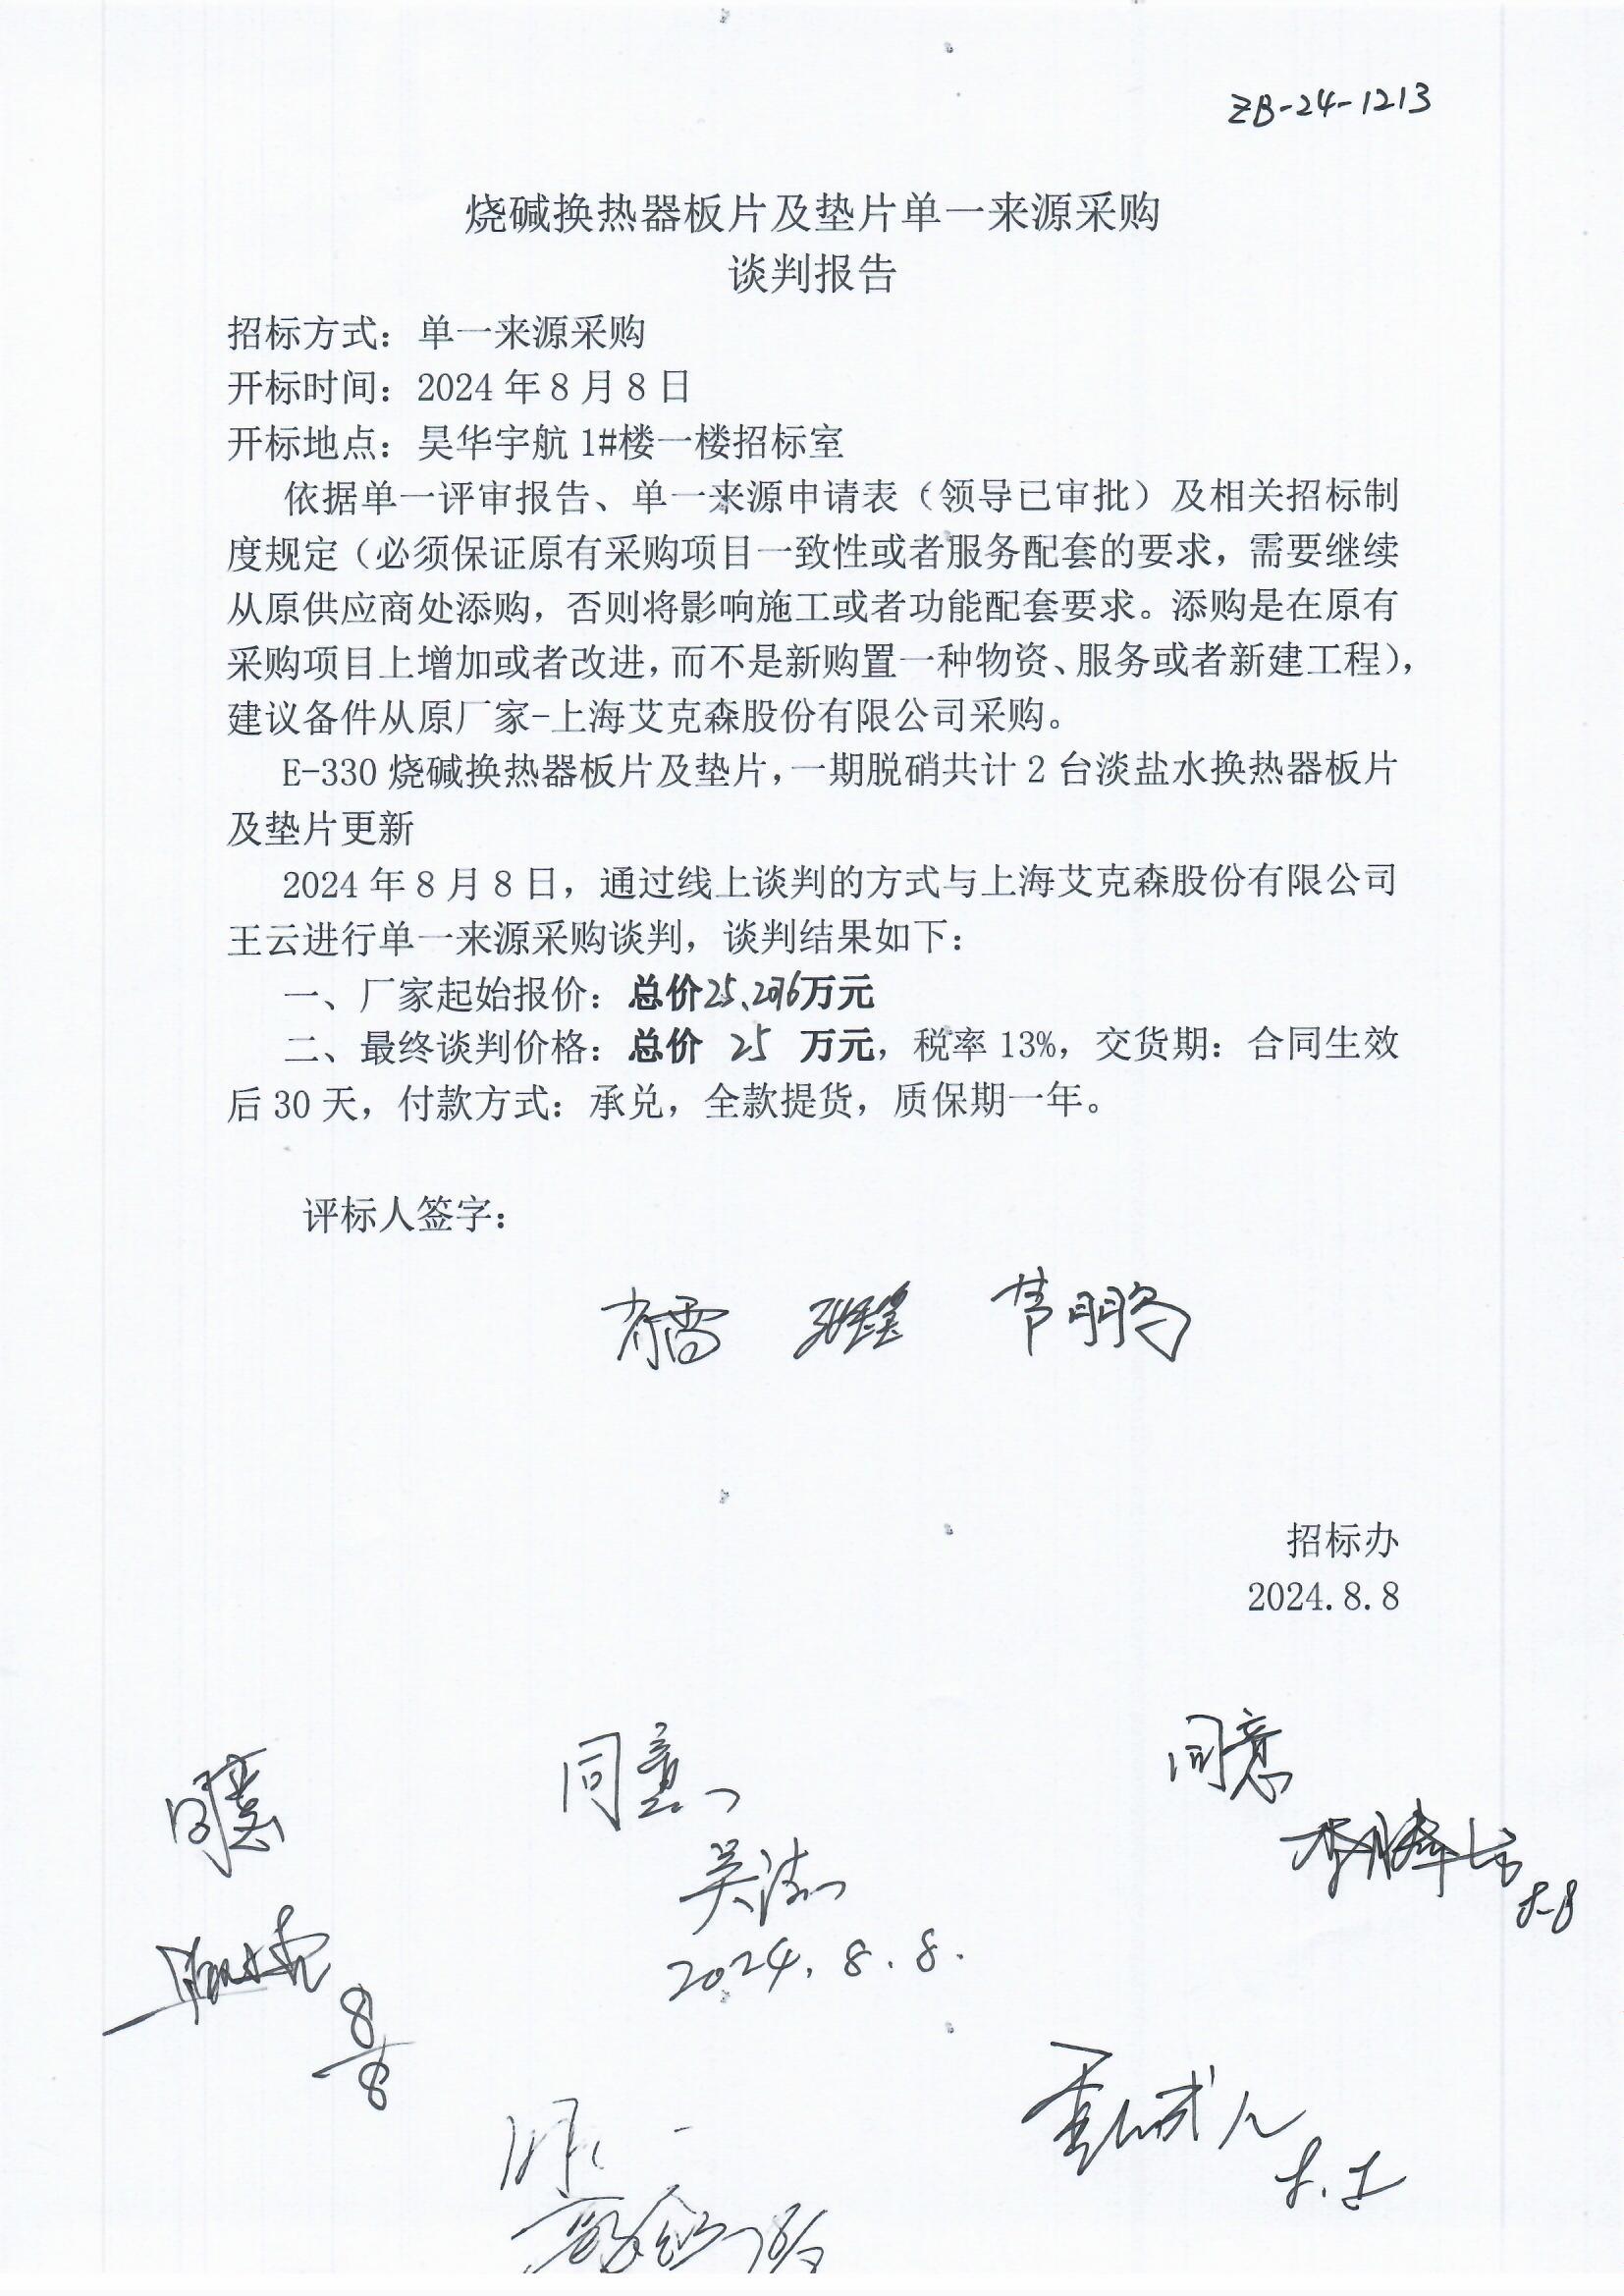 ZB-24-1213
烧碱换热器板片及垫片单一来源采购
谈判报告
招标方式：单一来源采购
开标时间：2024年8月8日
开标地点：昊华宇航1#楼一楼招标室
依据单一评审报告、单一来源申请表（领导已审批）及相关招标制
度规定（必须保证原有采购项目一致性或者服务配套的要求，需要继续
从原供应商处添购，否则将影响施工或者功能配套要求。添购是在原有
采购项目上增加或者改进，而不是新购置一种物资、服务或者新建工程），
建议备件从原厂家-上海艾克森股份有限公司采购。
E-330烧碱换热器板片及垫片，一期脱硝共计2台淡盐水换热器板片
及垫片更新
2024年8月8日，通过线上谈判的方式与上海艾克森股份有限公司
王云进行单一来源采购谈判，谈判结果如下：
一、厂家起始报价：总价25.2036万元
二、最终谈判价格：总价 25 万元，税率13%，交货期：合同生效
后30天，付款方式：承兑，全款提货，质保期一年。
评标人签字：
招标办
2024.8.8
同意 同意 同意
8-8
2024.8.8.
8/8
8.8